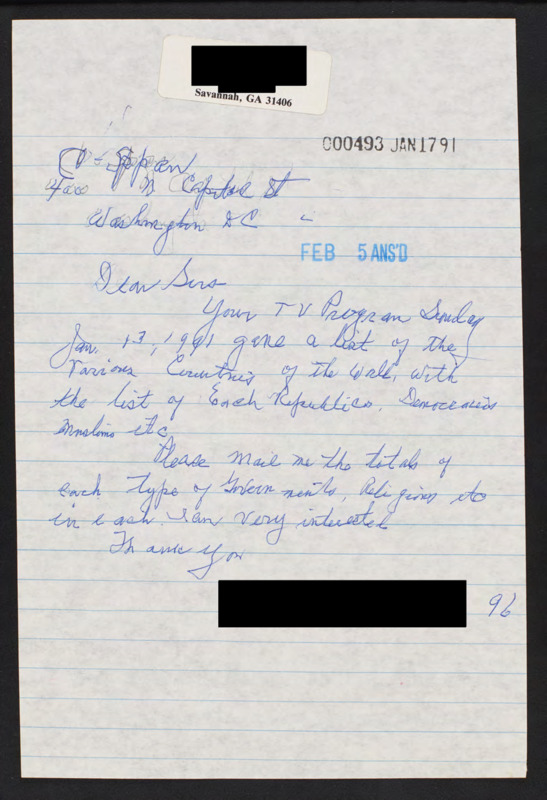 Savannah, GA 31406
000493 JAN1791
C-Span
400 N Capitol St
Washington DC
FEB 5 ANS'D
Dear Sirs
Your TV Program Sunday
Jan. 13, 1991 gave a list of the
Various Countries of the World, with
the list of Each Republics, Democracies
Muslims etc
Please mail me the totals of
each type of Governments, Religions etc
in each. I am very interested
Thank you
96